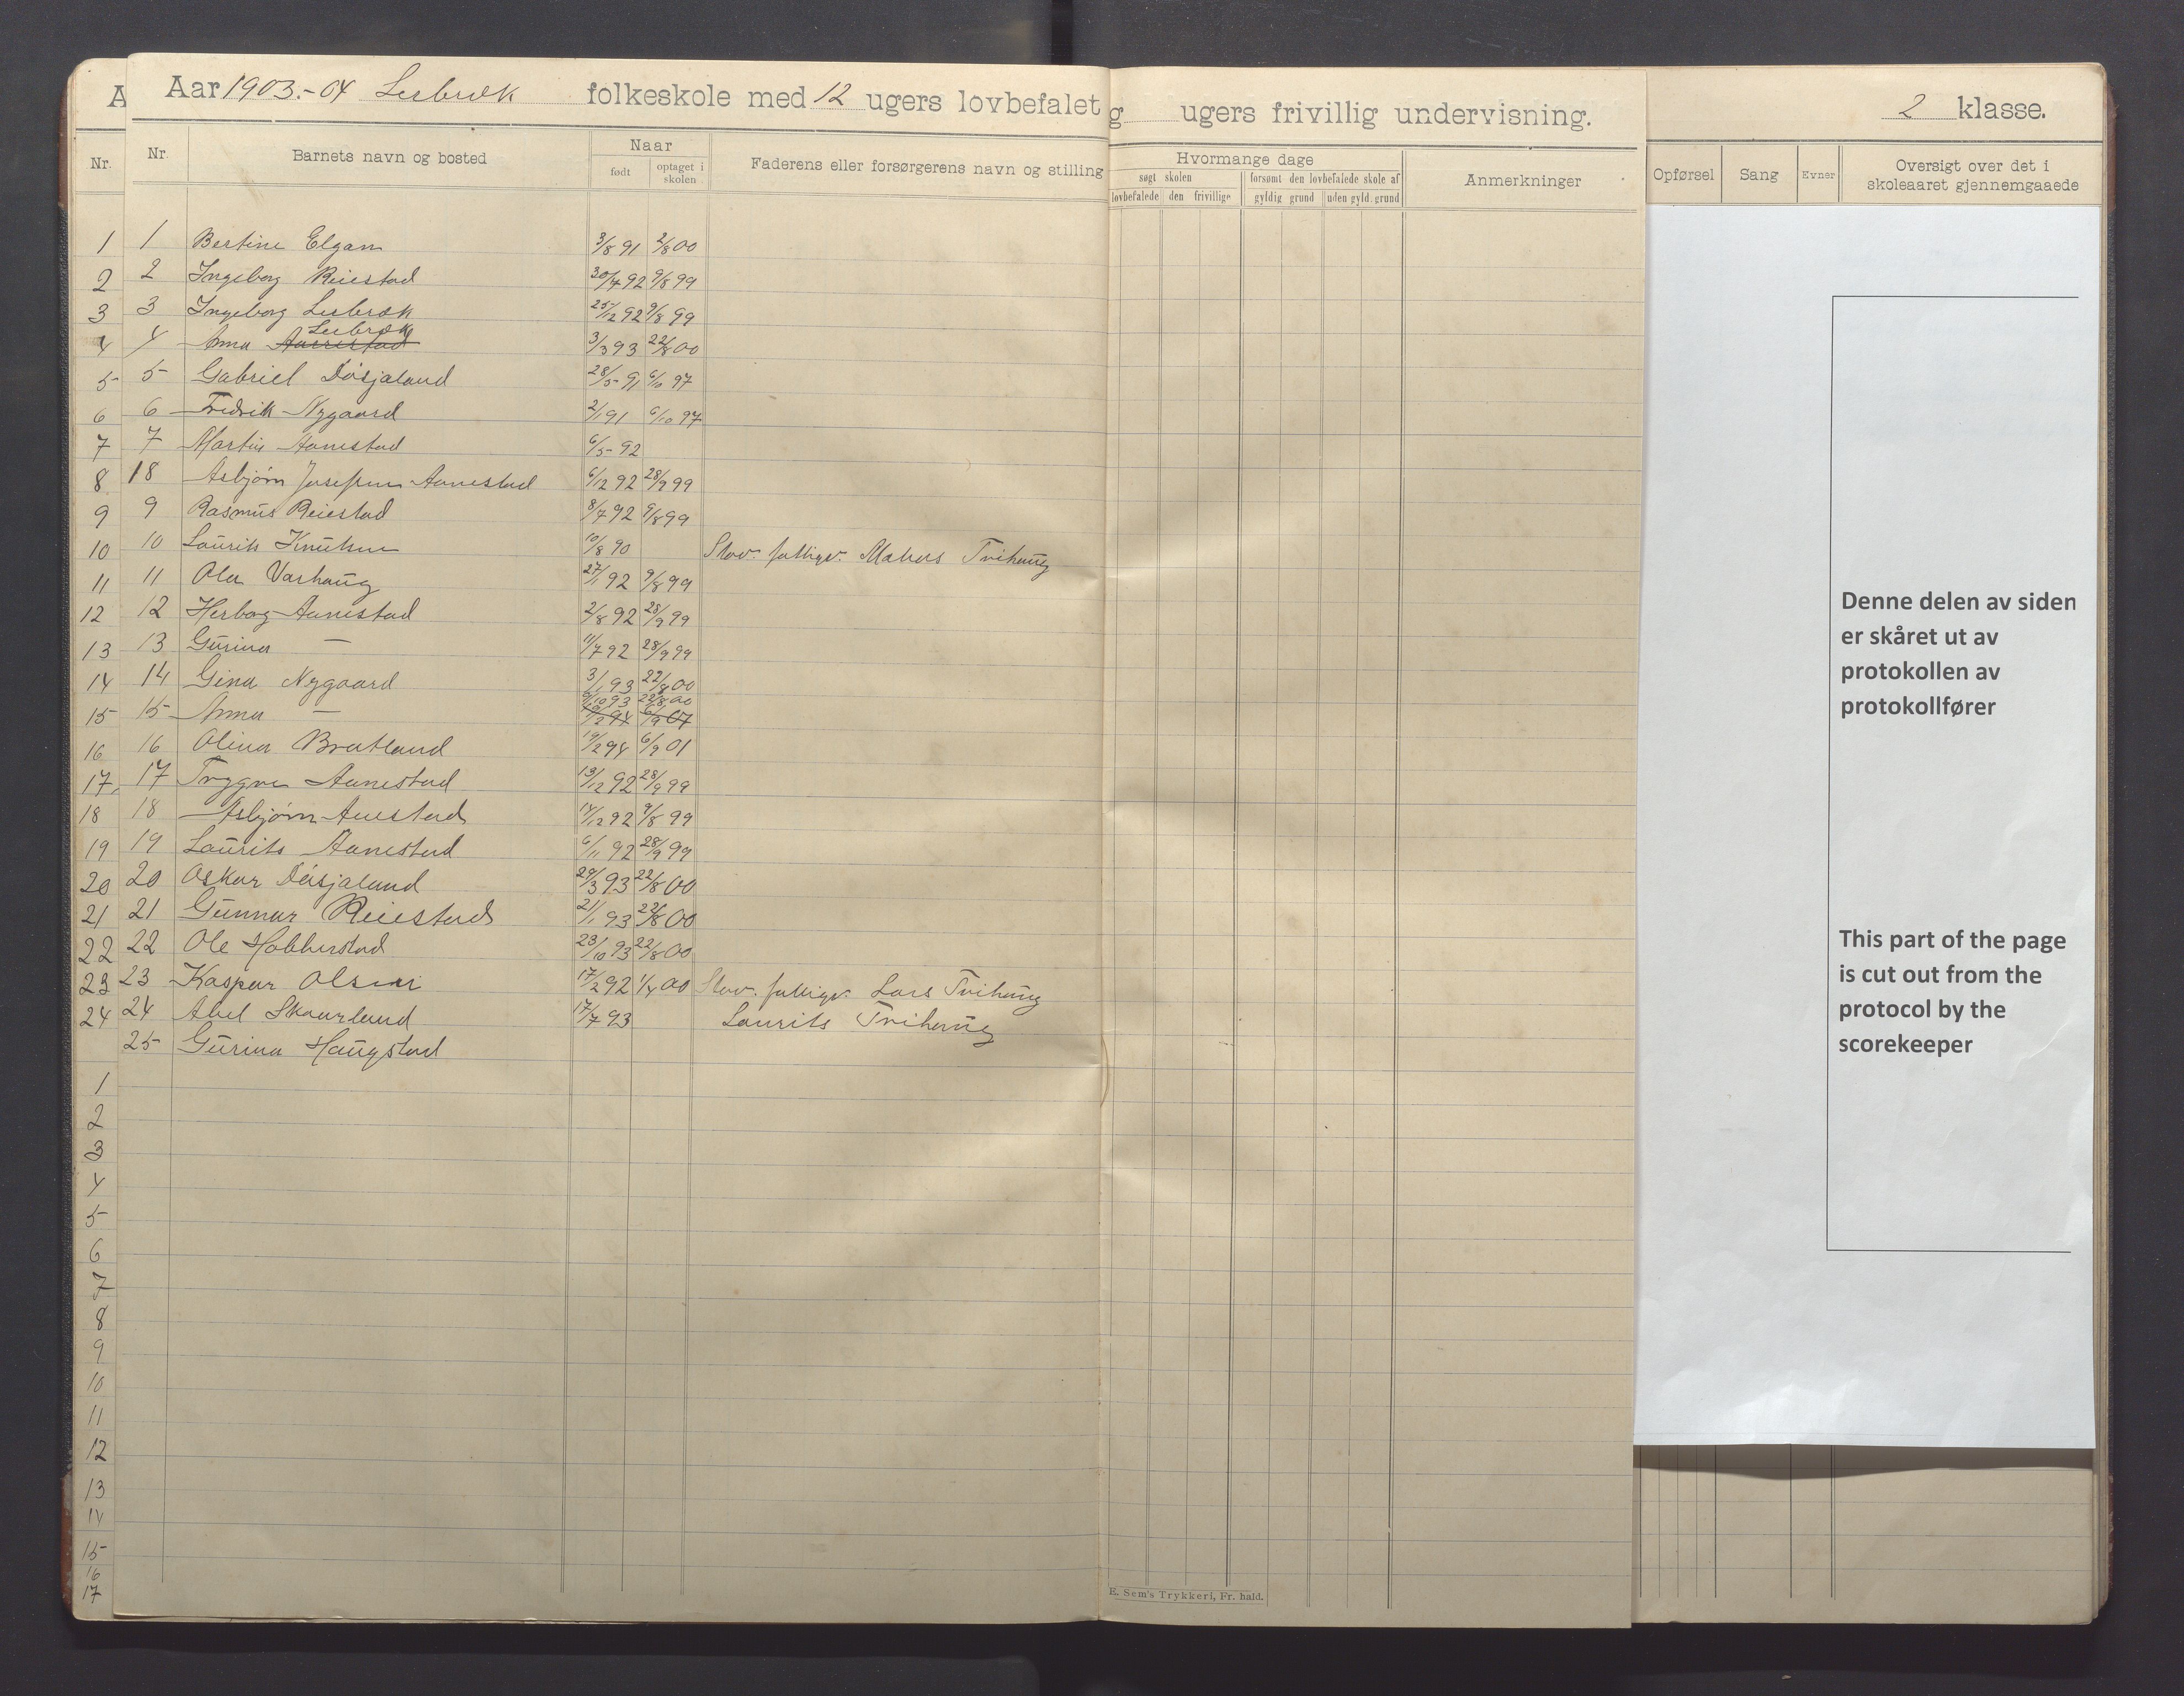 Aar 1903.-04 Lerbræk folkeskole med 12 ugers lovbefalet g ugers frivillig undervisning. 2 klasse.
Nr. Nr. Barnets navn og bosted Naar Faderens eller forsørgerens navn og stilling Hvormange dage Anmerkninger Opførsel Sang Evner Oversigt over det i skoleaaret gjennemgaaede
født optaget i skolen søgt skolen forsømt den lovbefalede skole af
lovbefalede den frivillige gyldig grund uden gyld. grund
1 1 Bertine Elgan 3/8 91 2/8 00
2 2 Ingeborg Reiestad 30/4 92 9/8 99
3 3 Ingeborg Lerbræk 25/12 92 9/8 99
Lerbræk
4 4 Anna Aanestad 3/3 93 22/8 00
5 5 Gabriel Døsjaland 28/5 91 6/10 97
6 6 Fredrik Nygaard 2/1 91 6/10 97
7 7 Martin Aanestad 6/5 92
8 18 Asbjørn Josefsen Aanestad 6/12 92 28/9 99
9 9 Rasmus Reiestad 8/7 92 9/8 99
10 10 Laurits Knutsen 10/8 90 Stav. fattigv. Tvihaug
11 11 Ola Varhaug 27/1 92 9/8 99
12 12 Herborg Aanestad 2/8 92 28/9 99
13 13 Gurina — 11/7 92 28/9 99
14 14 Gina Nygaard 3/1 93 22/8 00
9/10 93 22/8 00
15 15 Anna —
16 16 Olina Bratland 19/2 94 6/9 01
17. 17 Trygve Aanestad 13/12 92 28/9 99
18 18 Asbjørn Auestad 14/12 92 9/8 99
19 19 Laurits Aanestad 6/11 92 28/9 99
20 20 Oskar Døsjaland 29/3 93 22/8 00
21 21 Gunnar Reiestad 21/1 93 22/8 00
22 22 Ole Hobberstad 23/10 93 22/8 00
23 23 Kaspar Olsen 17/2 92 1/4 00 Stav. fattigv. Lars Tvihaug
24 24 Abel Skaarland 17/7 93 Laurits Tvihaug
25 Gurina Haugstad
1
2
3
4
5
6
7
8
9
10
11
12
13
14
15
16
17
E. Sem's Trykkeri, Fr. hald.
Denne delen av siden
er skåret ut av
protokollen av
protokollfører
This part of the page
is cut out from the
protocol by the
scorekeeper